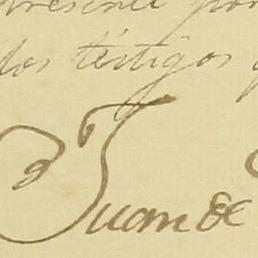 presente por
los téstigos
Juan de